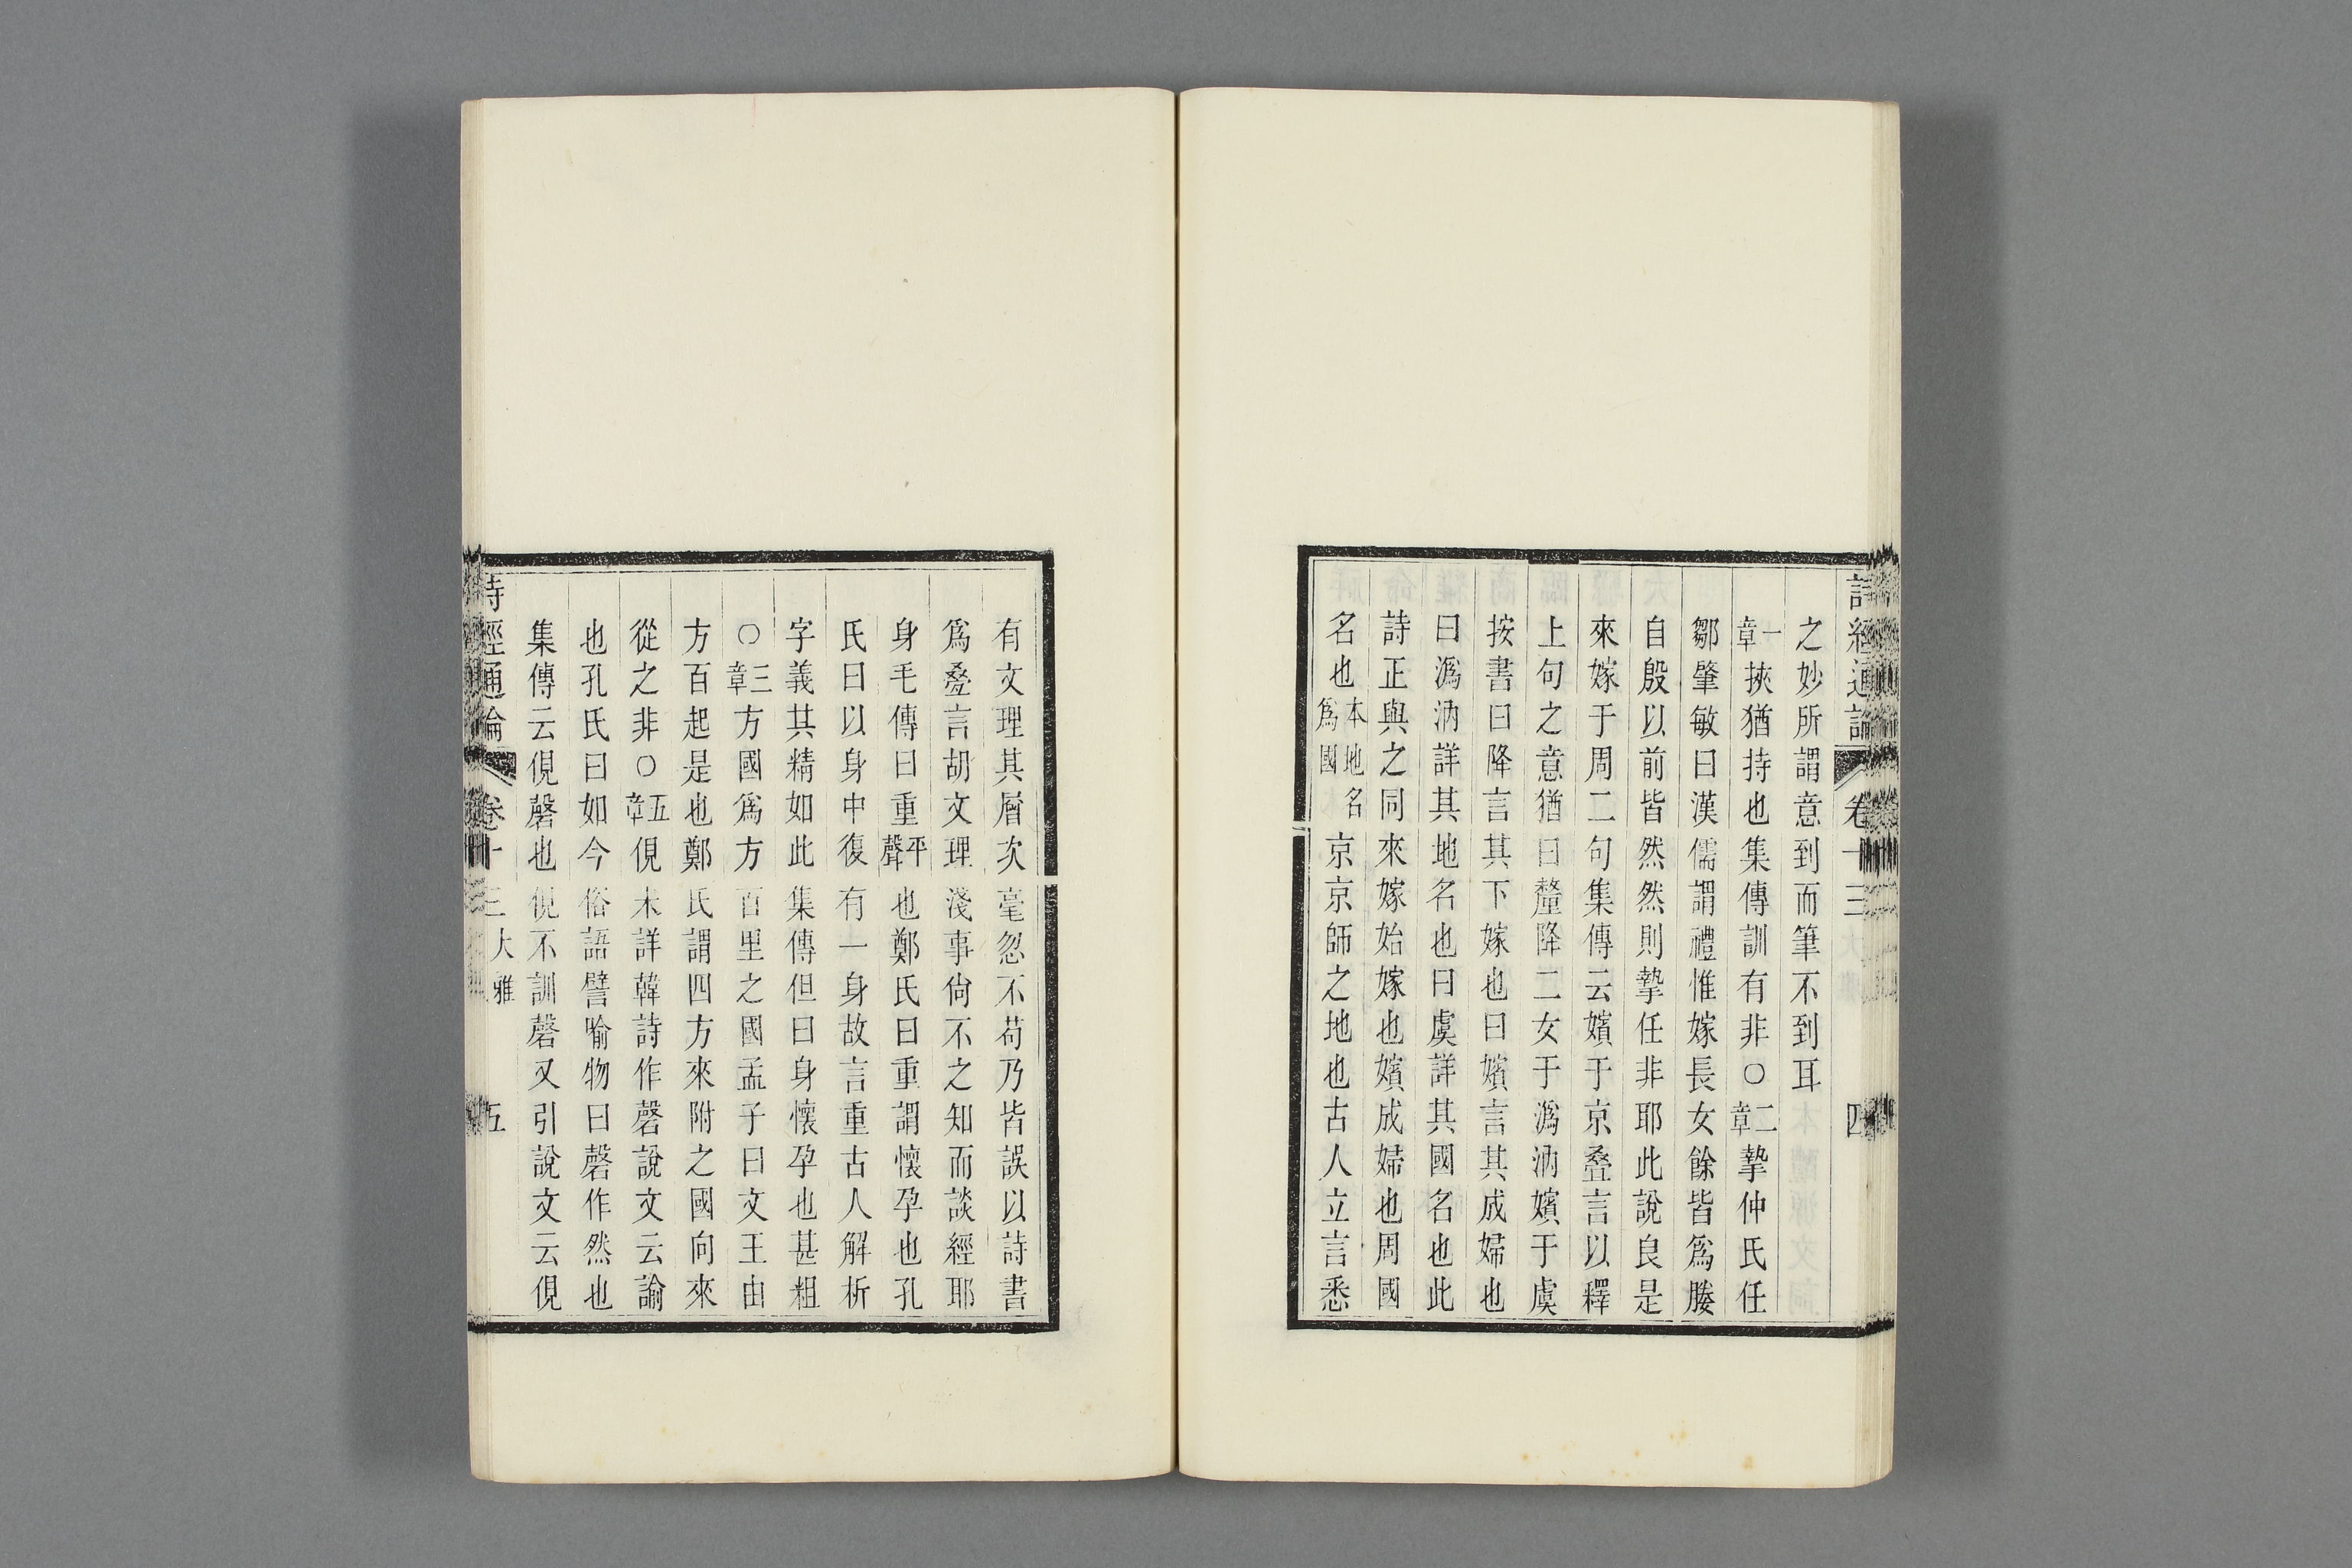 詩經通論 卷十三 四
之妙所謂意到而筆不到耳
一章挾猶持也集傳訓有非○二章摯仲氏任
鄒肇敏曰漢儒謂禮惟嫁長女餘皆爲媵
自殷以前皆然然則摯任非耶此說良是
來嫁于周二句集傳云嬪于京叠言以釋
上句之意猶曰釐降二女于溈汭嬪于虞
按書曰降言其下嫁也曰嬪言其成婦也
曰溈汭詳其地名也曰虞詳其國名也此
詩正與之同來嫁始嫁也嬪成婦也周國
名也本地名爲國京京師之地也古人立言悉
有文理其層次毫忽不苟乃皆誤以詩書
爲叠言胡文理淺事尙不之知而談經耶
身毛傳曰重平聲也鄭氏曰重謂懷孕也孔
氏曰以身中復有一身故言重古人解析
字義其精如此集傳但曰身懷孕也甚粗
○三章方國爲方百里之國孟子曰文王由
方百起是也鄭氏謂四方來附之國向來
從之非○五章俔未詳韓詩作磬說文云諭
也孔氏曰如今俗語譬喻物曰磬作然也
集傳云俔磬也俔不訓磬又引說文云俔
詩經通論 卷十三 大雅 五